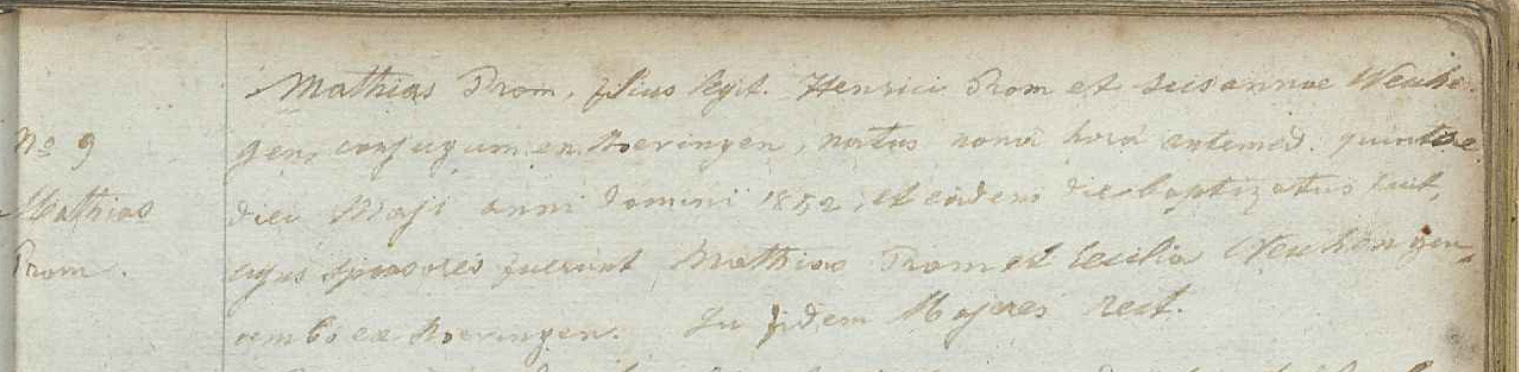 Mathias Prom, filius legit. Henrici Prom et Susannae Neuhe-
No 9
gen, conjugum ex Moeringen, natus nona hora antemed. quintae
Mathias
diei Maji anni domini 1852, et eadem die baptizatus fuit,
Prom.
cujus sponsores fuerunt Mathias Prom et Cecilia Neuhengen,
ambo ex Moeringen. In fidem Majeres rect.